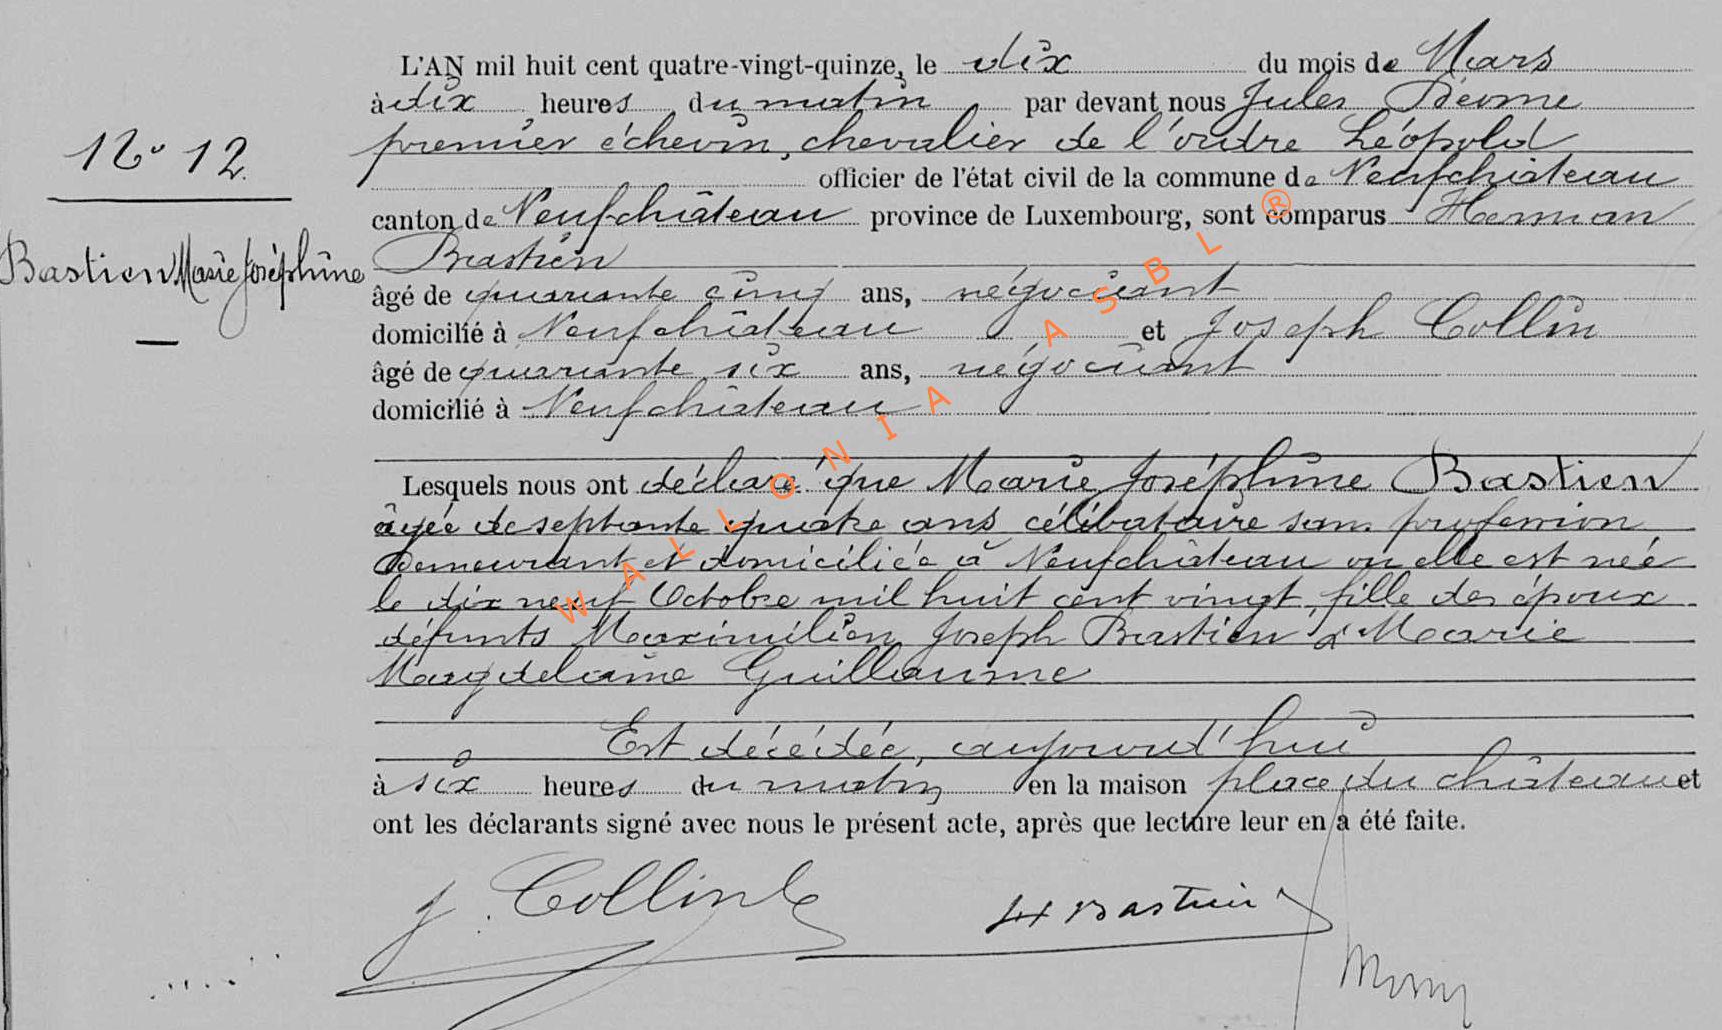 L'AN mil huit cent quatre-vingt-quinze, le dix du mois de Mars
à dix heures du matin par devant nous Jules
N° 12
premier échevin, chevalier de l'ordre Léopold
officier de l'état civil de la commune de Neufchâteau
canton de Neufchâteau province de Luxembourg, sont comparus Herman
Bastien
Bastien Marie Joséphine
âgé de quarante cinq ans, négociant
domicilié à Neufchâteau et Joseph Collin
âgé de quarante six ans, négociant
domicilié à Neufchâteau
Lesquels nous ont déclaré que Marie Joséphine Bastien
âgée de septante quatre ans célibataire sans profession
demeurant et domiciliée à Neufchâteau ou elle est née
le dix neuf Octobre mil huit cent vingt, fille des époux
défunts Maximilien Joseph Bastien & Marie
Magdelaine Guillaume
Est décédée, aujourd'hui
à six heures du matin, en la maison place du château et
ont les déclarants signé avec nous le présent acte, après que lecture leur en a été faite.
J. Collin H Bastien
WALLONIA ASBL ®